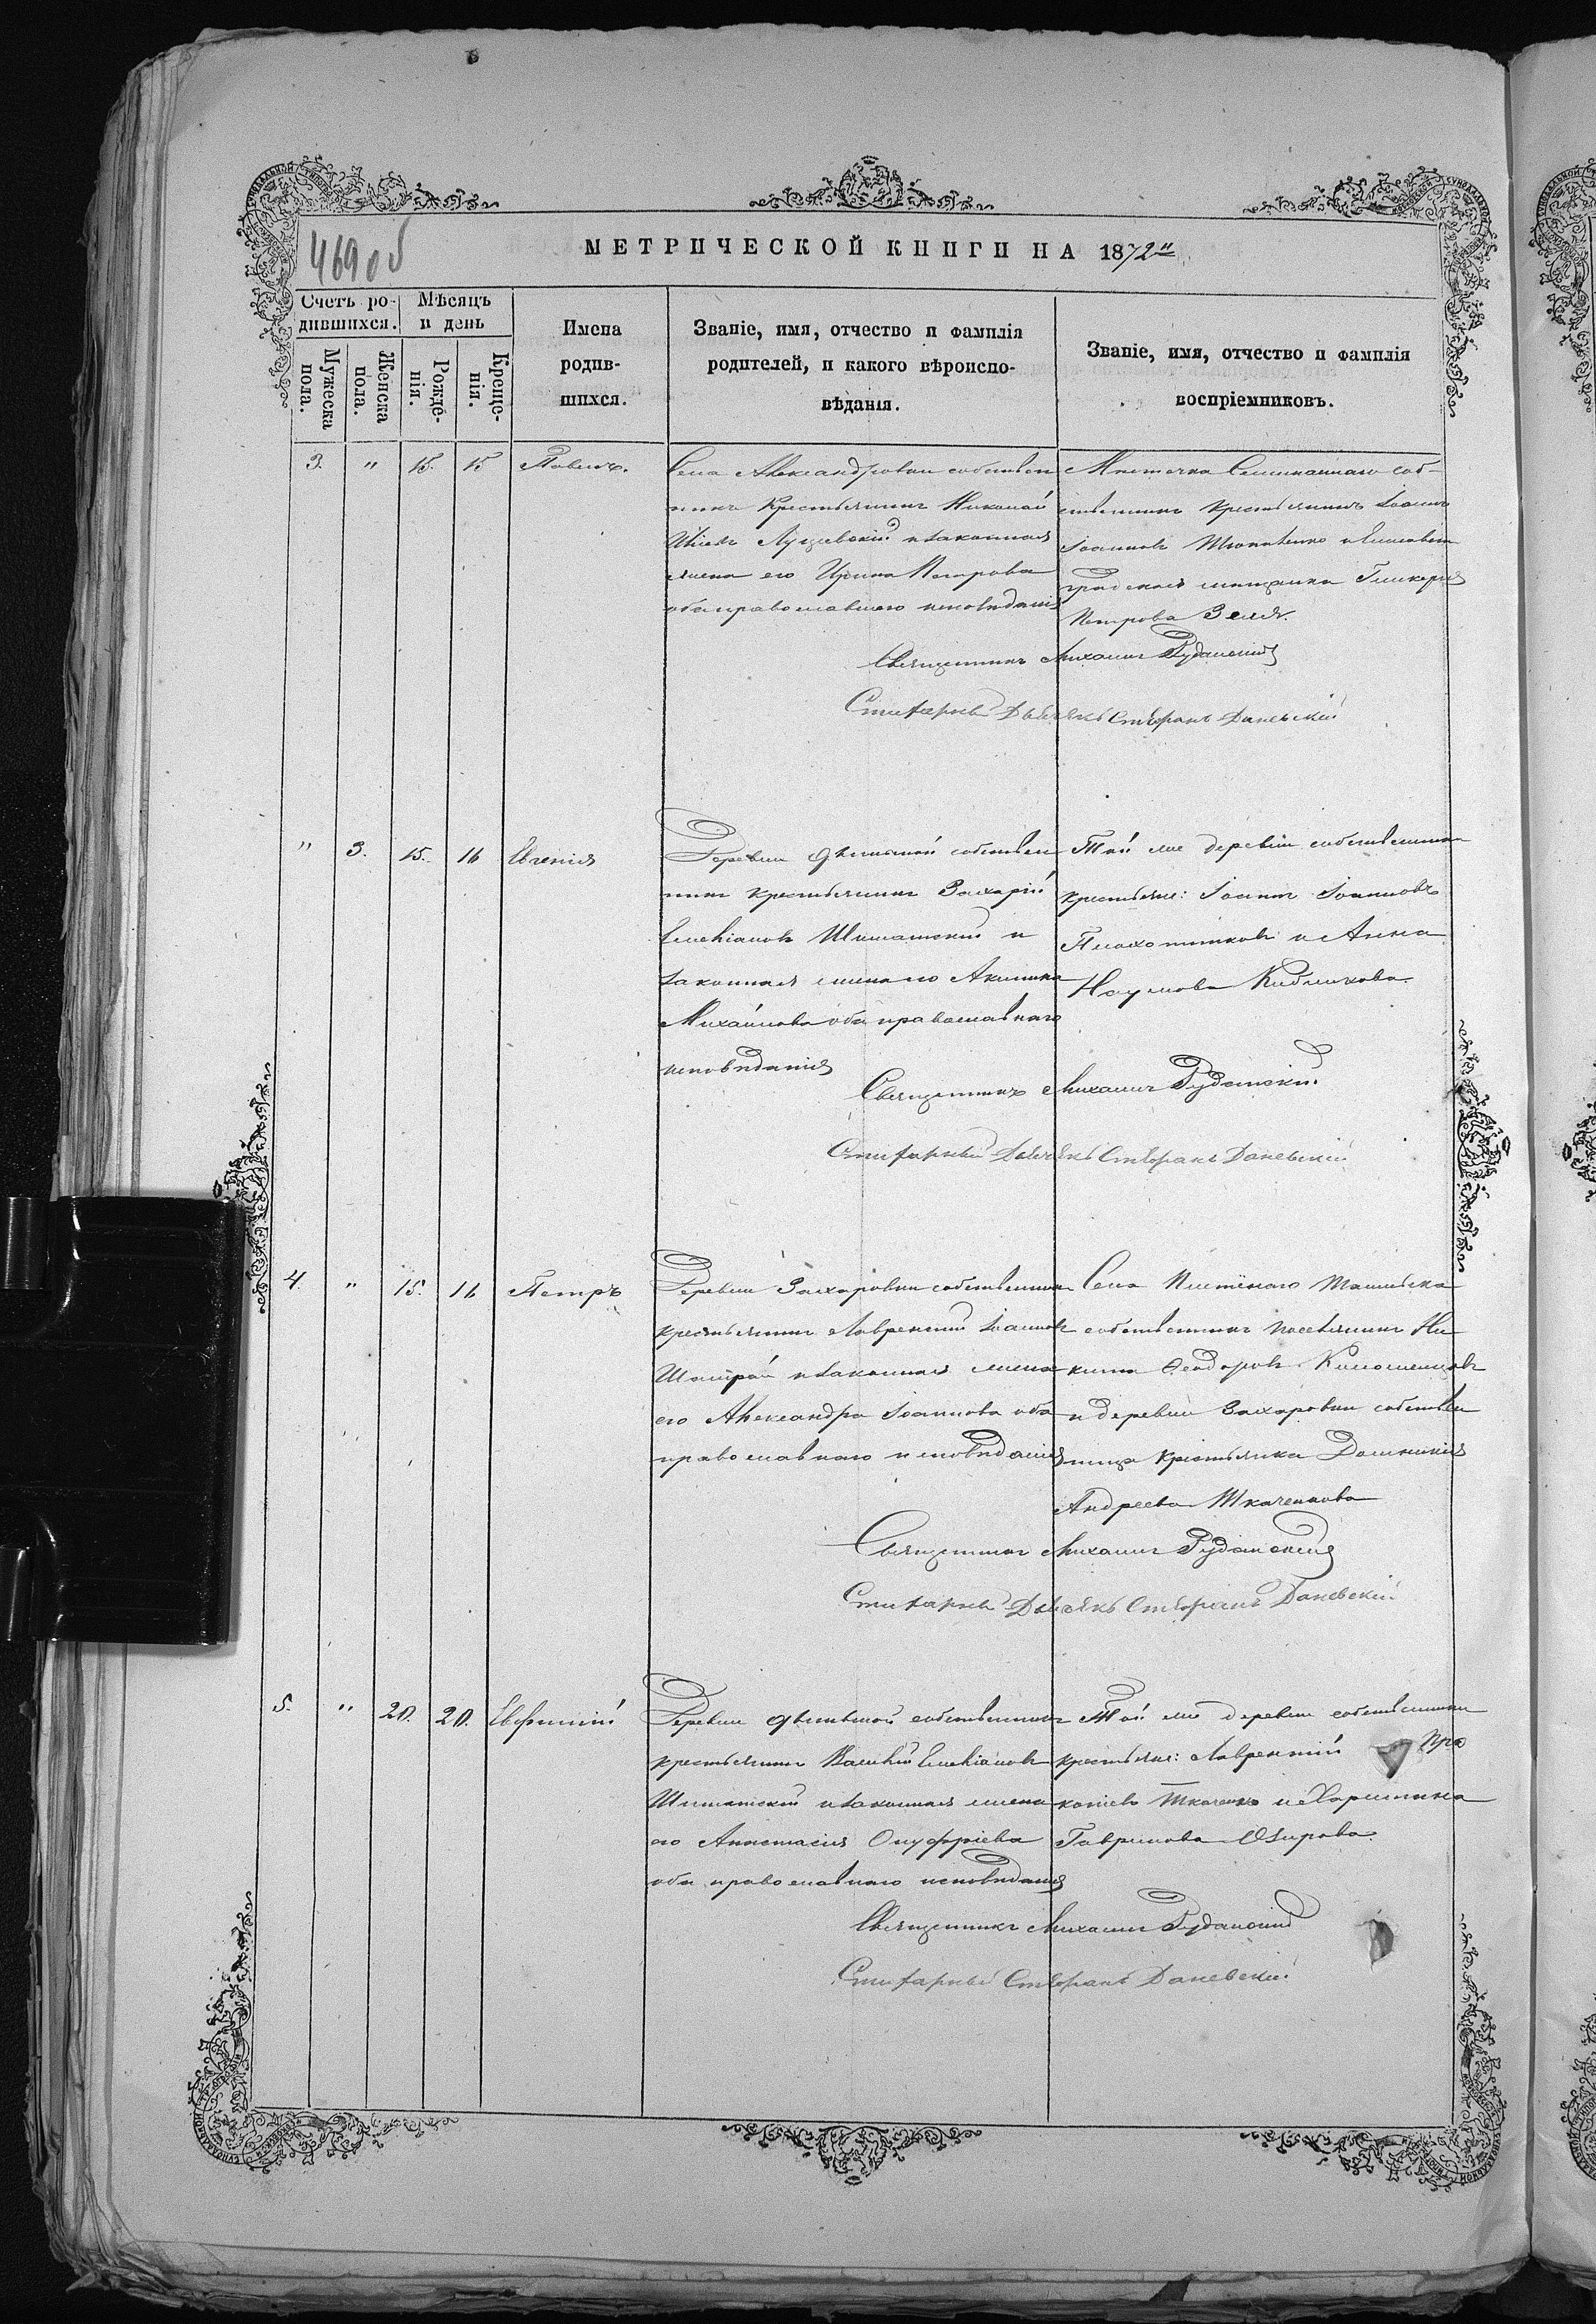 469 об
МЕТРИЧЕСКОЙ КНИГИ НА 1872й
Счетъ родившихся.
Мѣсяцъ и день
Имена родившихся.
Званіе, имя, отчество и фамилія родителей, и какого вѣроисповѣданія.
Званіе, имя, отчество и фамилія воспріемниковъ.
Мужеска пола.
Женска пола.
Рожденія.
Крещенія.
3. " 15. 15 Павелъ.
Села Александровки собствен
никъ Крестьянинъ Николай
Лущевскій и законная
жена его Ирина Петрова
оба православнаго исповѣданія
Мѣстечка соб-
ственникъ крестьянинъ Іоаннъ
Іоанновъ и Елисавет
градская мѣщанка Гликерія
Петрова
Священникъ Михаилъ Руданскій
Стихарный Дьячекъ Стефанъ Даневскій
" 3. 15. 16 Евгенія
Деревни собствен
никъ крестьянинъ Захарій
Шиманскій и
законная жена его Акилина
Михайлова оба православнаго
исповѣданія
Той же деревни собственники
крестьяне: Іоаннъ Іоанновъ
Плахотниковъ и Анна
Наумова
Священникъ Михаилъ Руданскій
Стихарный Дьячекъ Стефанъ Даневскій
4. " 15. 16 Петръ
Деревни Захаровки собственникъ
крестьянинъ Лаврентій Іоанновъ
и законная жена
его Александра Іоаннова оба
православнаго исповѣданія
Села Плетенаго Ташлыка
собственникъ поселянинъ Ни
кита Феодоровъ
и деревни Захаровки собствен
ница крестьянка Домникія
Андреева Ткаченкова
Священникъ Михаилъ Руданскій
Стихарный Дьячекъ Стефанъ Даневскій
5. " 20. 20. Евфимій
Деревни собственникъ
крестьянинъ Василій
Шиманскій и законная жена
его Анастасія Онуфріева
оба православнаго исповѣданія
Той же деревни собственники
крестьяне: Лаврентій Про
копіевъ Ткаченко и Харитина
Гаврилова
Священникъ Михаилъ Руданскій
Стихарный Стефанъ Даневскій